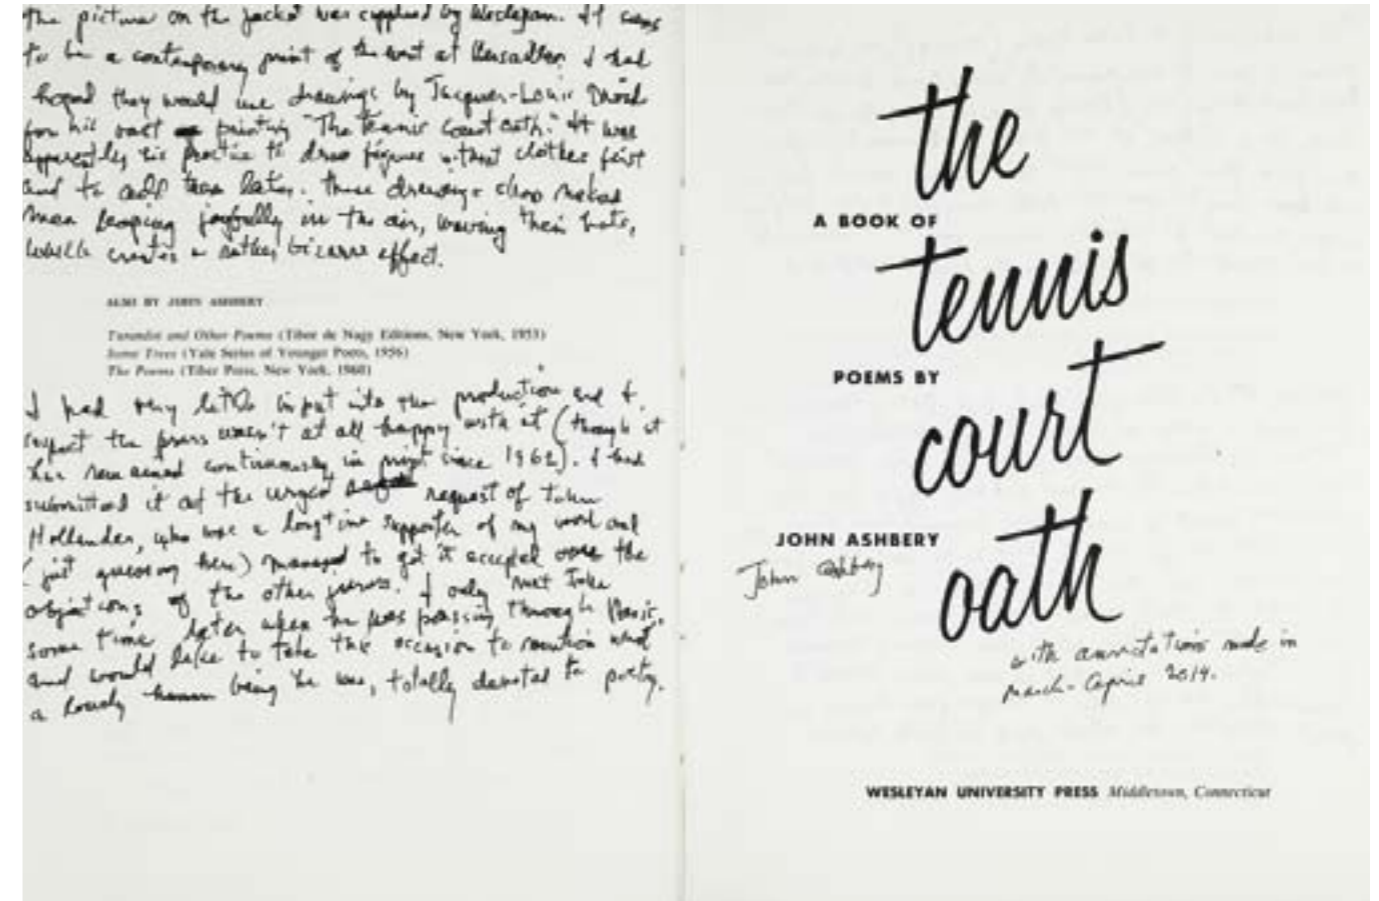 The picture on the jacket was supplied by Wesleyan. It seems
to be a contemporary print of the event at Versailles. I had
hoped they would use drawings by Jacques-Louis David
for his vast painting "The Tennis Court Oath." It was
apparently his practice to draw figures without clothes first
and to add them later. These drawings show naked
men leaping joyfully in the air, waving their hats,
which creates a rather bizarre effect.
ALSO BY JOHN ASHBERY
Turandot and Other Poems (Tibor de Nagy Editions, New York, 1953)
Some Trees (Yale Series of Younger Poets, 1956)
The Poems (Tiber Press, New York, 1960)
I had very little input into the production and I
suspect the press wasn't at all happy with it (though it
has remained continuously in print since 1962). I had
submitted it at the urgent request of John
Hollander, who was a longtime supporter of my work and
(just guessing here) managed to get it accepted over the
objections of the other jurors. I only met
some time later when he was passing through Paris,
and would like to take this occasion to mention what
a lovely human being he was, totally devoted to poetry.
the
A BOOK OF
tennis
POEMS BY
court
JOHN ASHBERY
oath
John Ashbery
with annotations made in
March-April 2014.
WESLEYAN UNIVERSITY PRESS Middletown, Connecticut